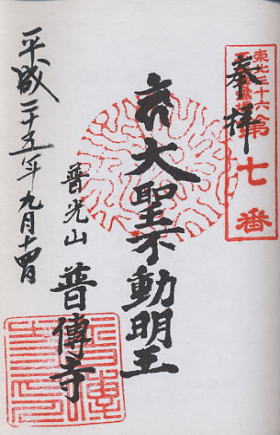 奉拝
東北三十六
第七番
大聖不動明王
普光山 普傳寺
平成二十五年九月十四日